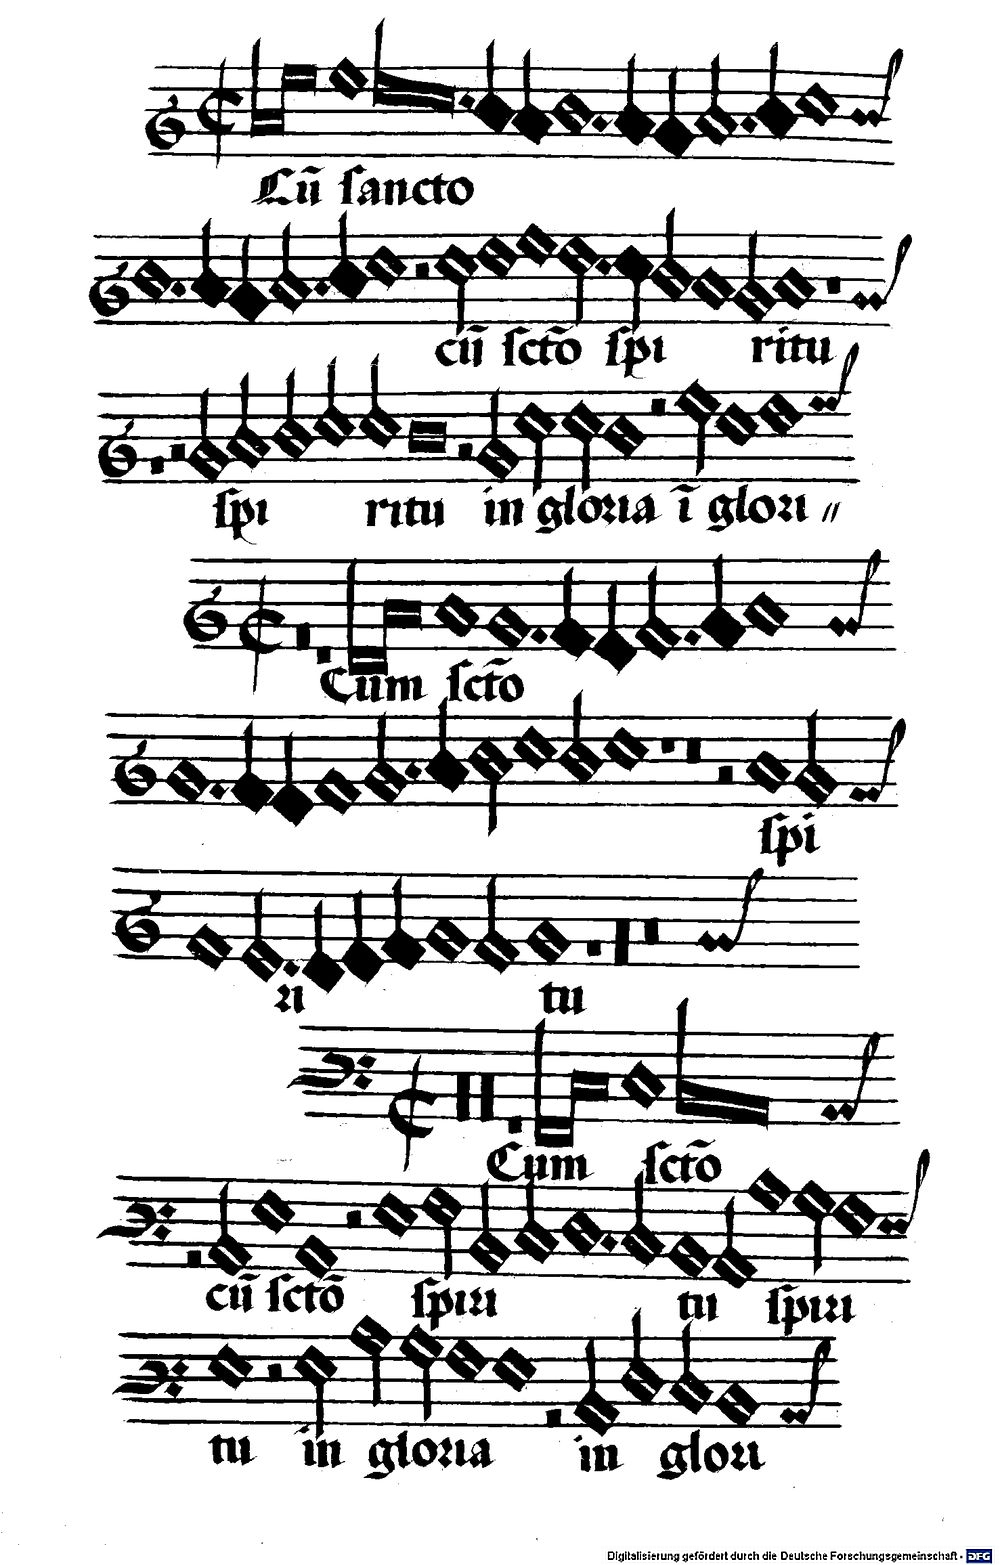 Cū ſancto
cū ſctō ſpı ritu
ſpı ritu in gloꝛıa ī gloꝛı //
Cum ſctō
ſpi
ꝛı tu
Cum ſctō
cū ſctō ſpıꝛı tu ſpıꝛı
tu in gloꝛıa in gloꝛı
Digitalisierung gefördert durch die Deutsche Forschungsgemeinschaft - DFG